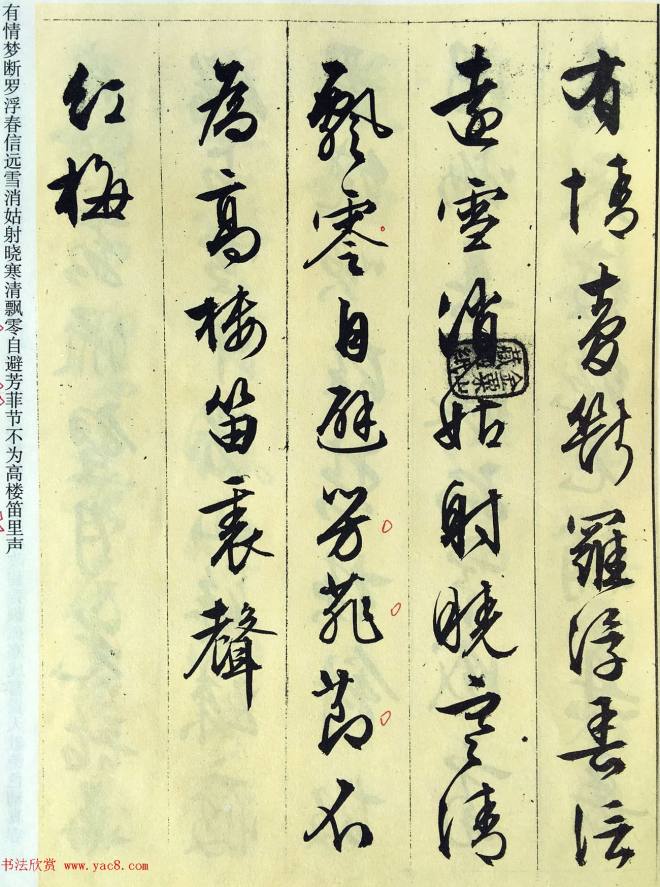 有情夢斷羅浮春信
遠雪消姑射曉寒清
飄零自避芳菲節不
為高樓笛裏聲
红梅
有情梦断罗浮春信远雪消姑射晓寒清飘零自避芳菲节不为高楼笛里声
书法欣赏 www.yac8.com